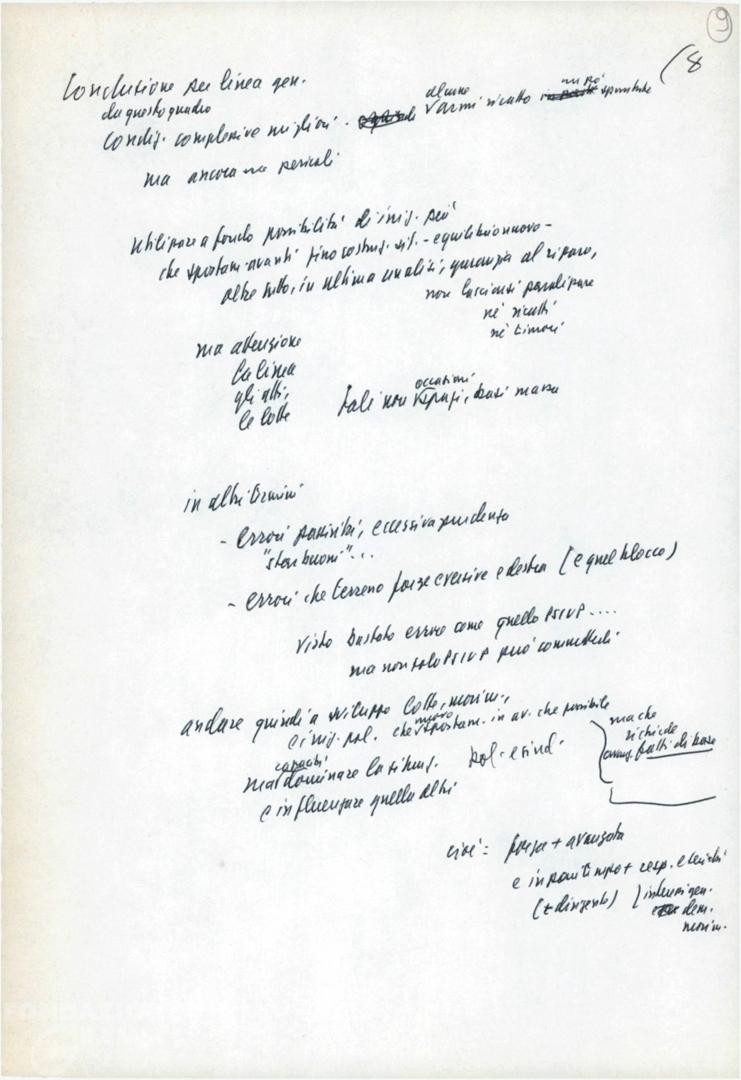 9
(8
Conclusione per linea gen.
da questo quadro
Condiz. complessive migliori - alcune armi ricatto un po' spuntate
ma ancora pericoli
Utilizzare a fondo possibilità di iniz. più
che spostam. avanti fino costruz. sit. - equilibrio nuovo -
oltre tutto, in ultima analisi, garanzia al riparo,
non lasciarsi paralizzare
né ricatti
né timori
ma attenzione
la linea
gli atti,
le lotte
tali non occasioni, spazi, basi massa
in altri termini
- Errori passività, eccessiva prudenza
"star buoni"...
- errori che terreno forze eversive e destra (e quel blocco)
Visto Bustato errore come quello PSIUP....
ma non solo PSIUP può commetterli
andare quindi a sviluppo lotte, movim.,
e iniz. pol. che nuovo spostam. in av. che possibile
ma capacità dominare la situaz. pol. e sind.
e influenzare quella altri
ma che
richiede
avanz. fatti di base
cioè = forza + avanzata
e in pari tempo + resp. e
(+ dirigente)
dem.
movim.